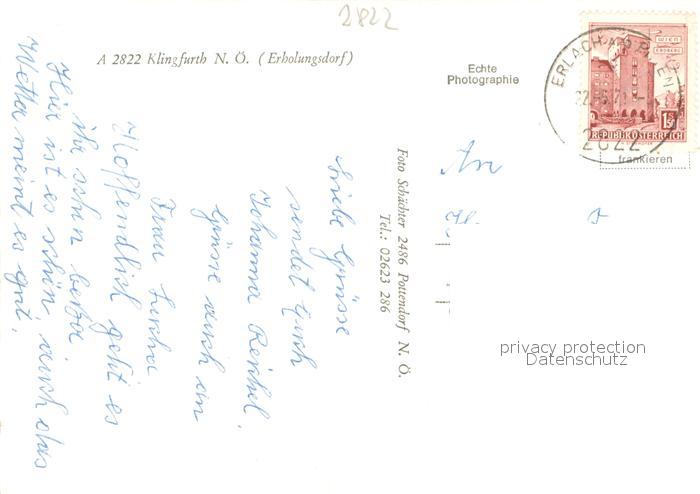 2822
A 2822 Klingfurth N. Ö. (Erholungsdorf)
Echte
Photographie
WIEN
ERDBERG
1.50
REPUBLIK ÖSTERREICH
ERLACH A.D.
2822
frankieren
An
Foto Schächter 2486 Pottendorf N. Ö.
Tel.: 02623 286
Liebe Grüsse
sendet Euch
Johanna
Grüsse auch an
Frau
Hoffendlich geht es
ihr schon besser.
Hier ist es schön, auch das
Wetter meint es gut.
privacy protection
Datenschutz